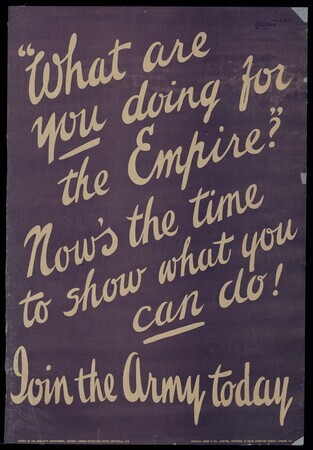 "What are
you doing for
the Empire?"
Now's the time
to show what you
can do!
Join the Army today